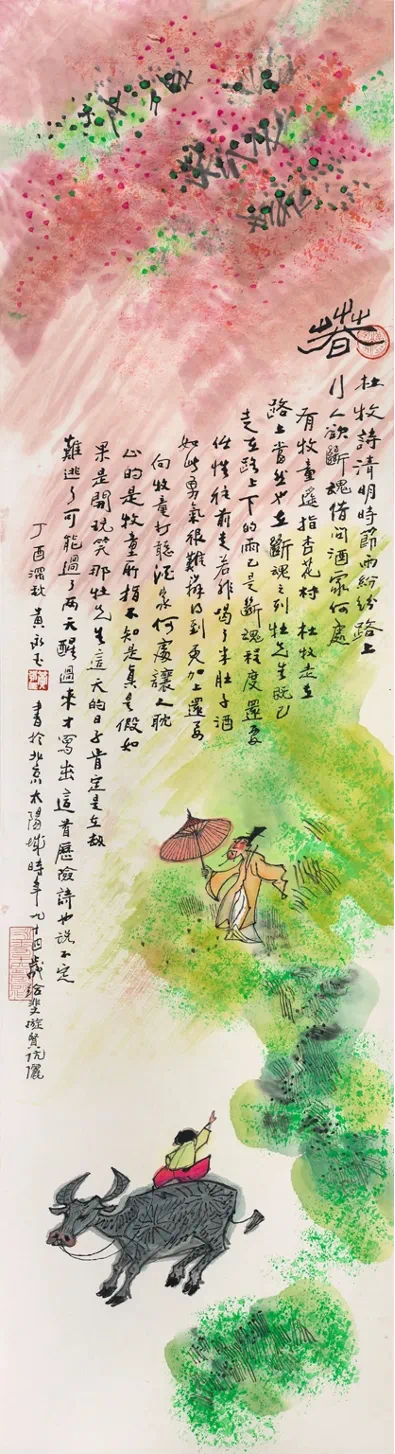 春
杜牧詩清明時節雨紛紛路上
行人欲斷魂借問酒家何處
有牧童遙指杏花村 杜牧走在
路上當然也在斷魂之列杜先生既已
走在路上下的雨已是斷魂程度還要
任性往前走若非喝了半肚子酒
如此勇氣很難辦得到更加上還要
向牧童打聽酒家何處讓人耽
心的是牧童所指不知是真是假如
果是開玩笑那杜先生這天的日子肯定是在劫
難逃了可能過了两天醒過來才寫出這首歷險詩也說不定
丁酉深秋 黃永玉 書於北京太陽城時年九十四歲 賢伉儷